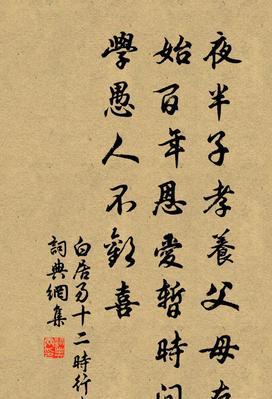 夜半子孝養父母存
始百年恩愛暫時間
學愚人不歡喜
白居易十二時行
詞典網集